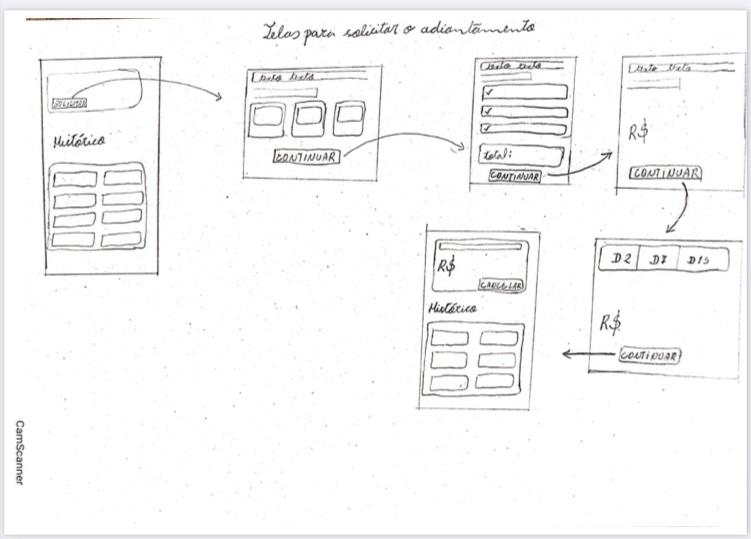 Telas para solicitar o adiantamento
SOLICITAR
Histórico
texto texto
CONTINUAR
texto texto
total:
CONTINUAR
texto texto
R$
CONTINUAR
D2 D7 D15
R$
CONTINUAR
R$
CANCELAR
Histórico
CamScanner